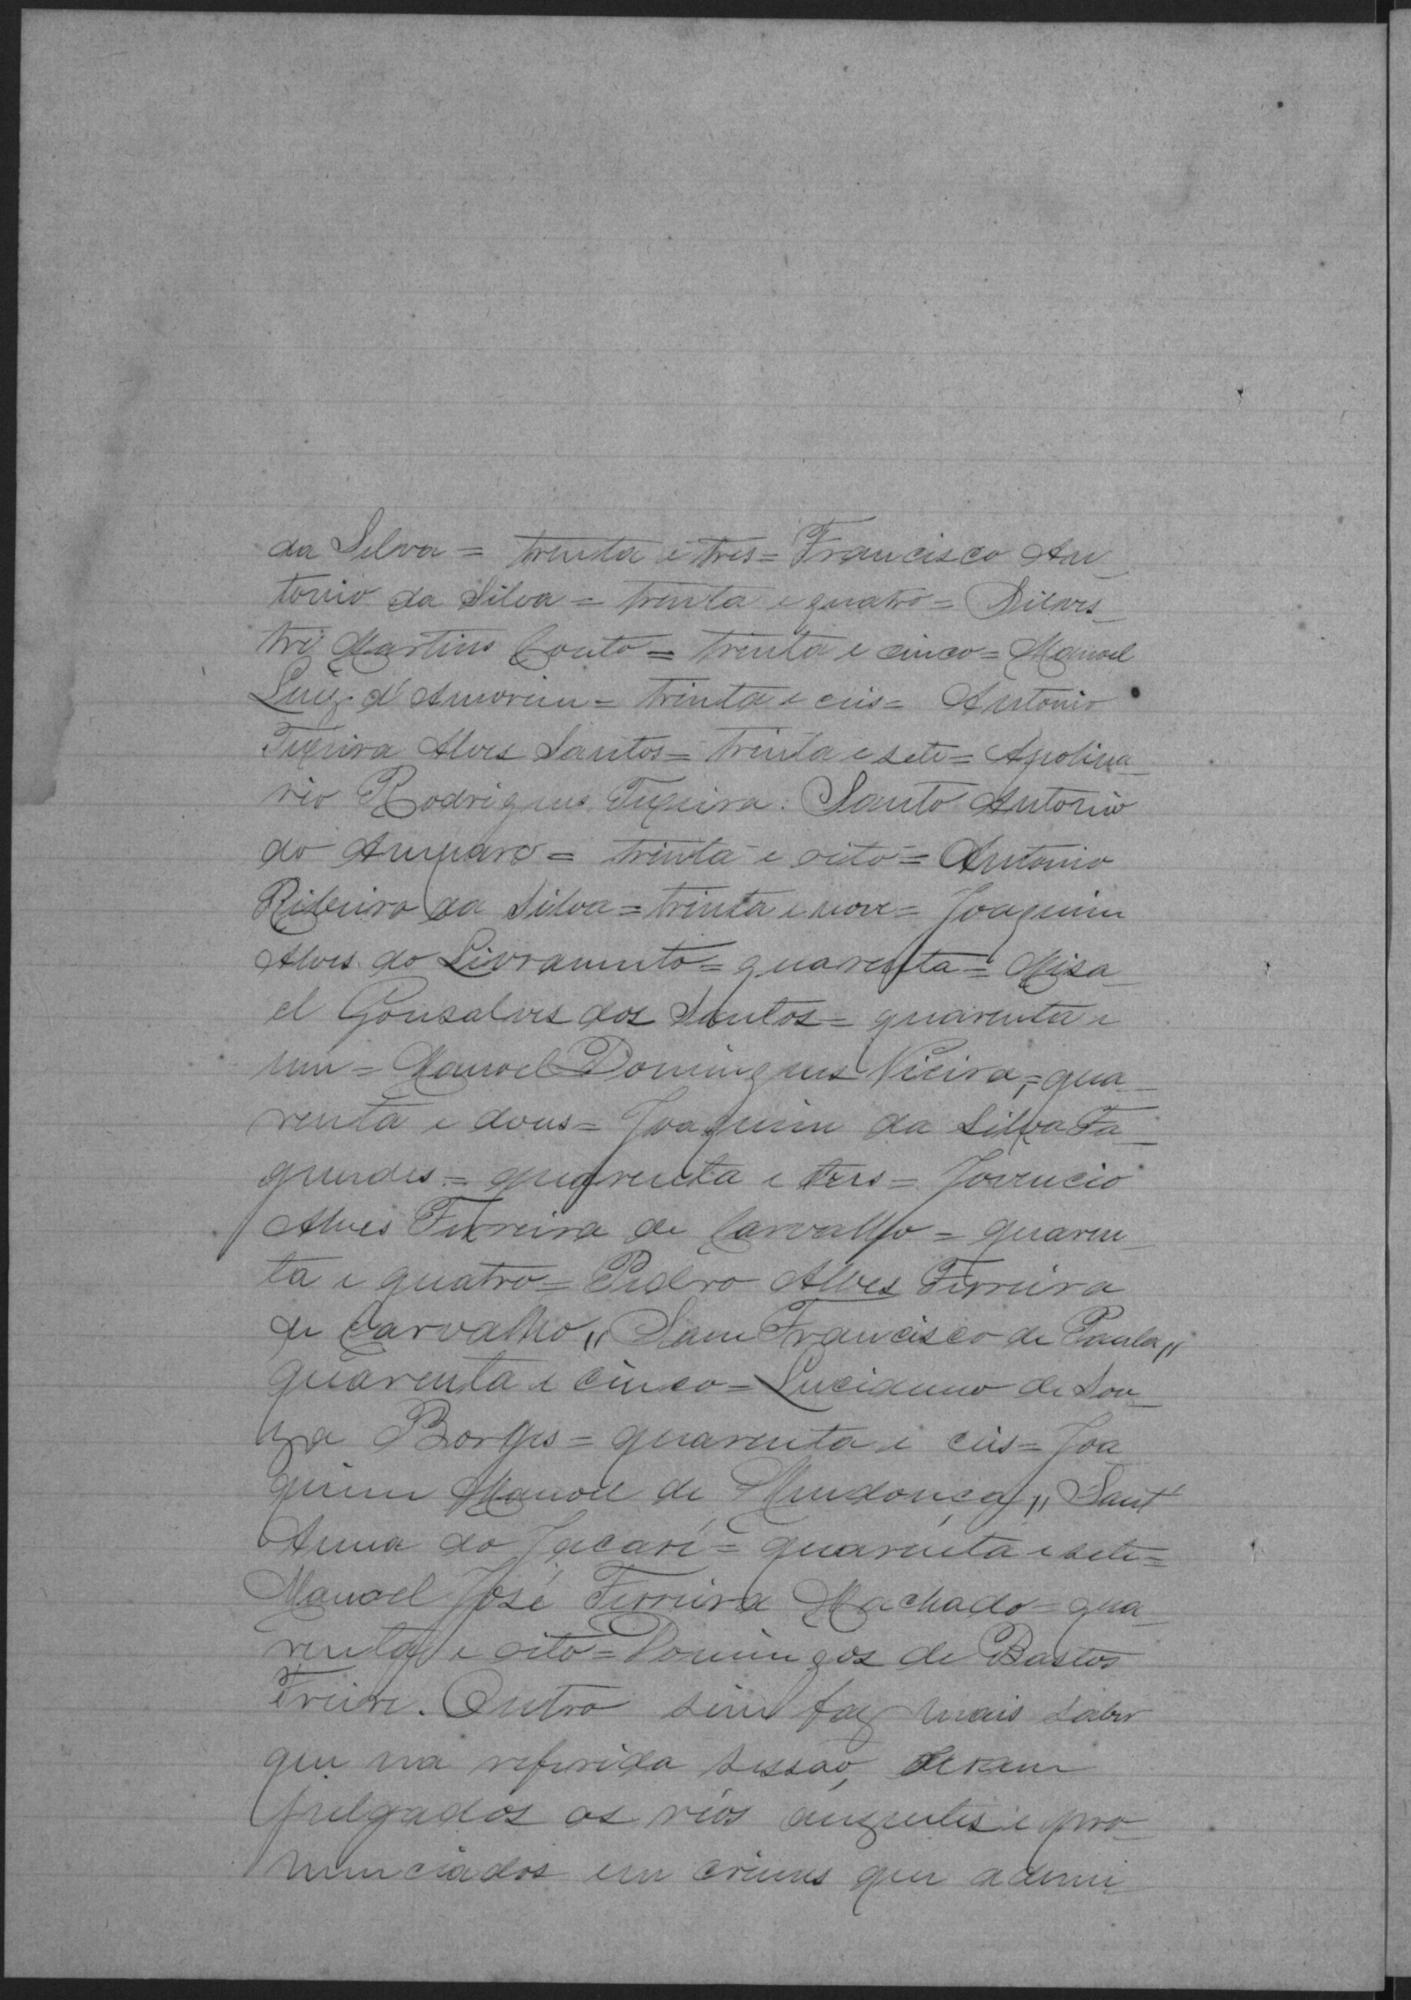 da Silva = trenta e tres = Francisco An_
tonio da Silva = trinta e quatro = Silves_
tre Martins Couto = trinta e cinco = Manoel
Luiz d'Amorim = trinta e ceis = Antonio
Texeira Alves Santos = trinta e sete = Apolina_
rio Rodrigues Texeira. Santo Antonio
do Amparo = trinta e oito = Antonio
Ribeiro da Silva = trinta e nove = Joaquim
Alves do Livramento = quarenta = Misa_
el Gonsalves dos Santos = quarenta e
um = Manoel Domingues Vieira, = qua_
renta e dous = Joaquim da Silva Fa_
gundes = quarenta e tres = Jovencio
Alves Ferreira de Carvalho = quaren_
ta e quatro = Pedro Alves Ferreira
de Carvalho „ Sam Francisco de Paula „
quarenta e cinco = Luciduino de Sou_
za Borges = quarenta e ceis = Joa
quim Manoel de Mendonça, „ Sant'
Anna do Jacaré = quarenta e sete =
Manoel José Ferreira Machado = qua_
renta e oito = Domingos de Bastos
Freire. Outro sim faz mais saber
que na referida sessão, seram
julgados os réos auzentes e pro_
nunciados em crimes que admi_